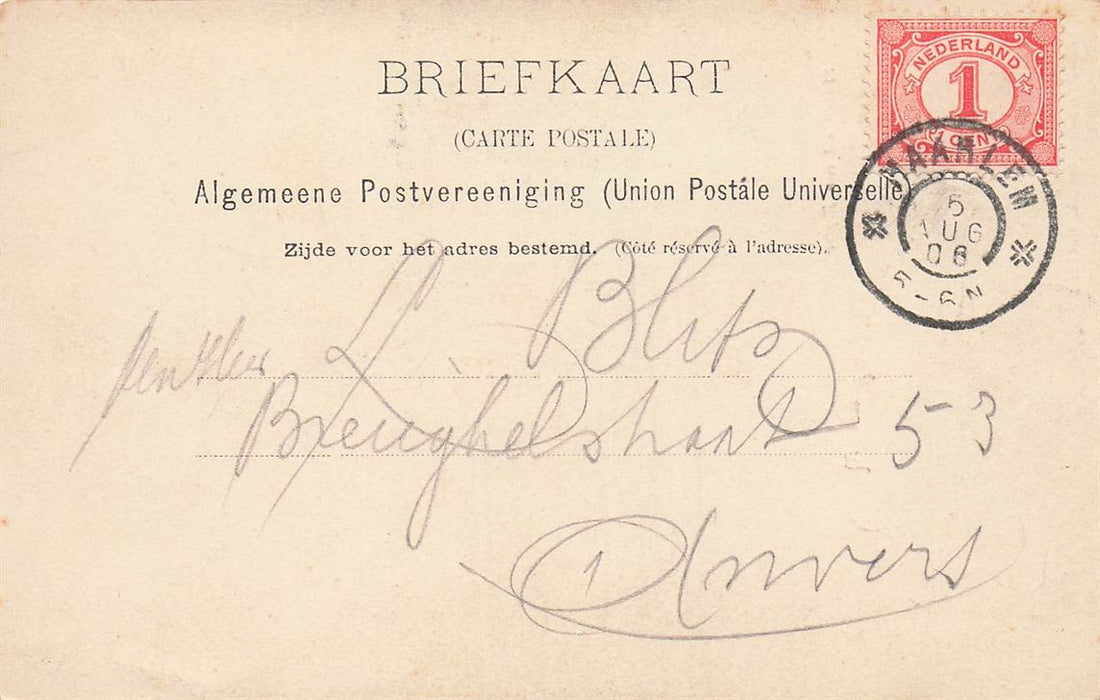 NEDERLAND
1
1 CENT
BRIEFKAART
(CARTE POSTALE)
Algemeene Postvereeniging (Union Postále Universelle)
Zijde voor het adres bestemd. (Côté réservé à l'adresse).
HAARLEM
5
AUG
06
5-6N
L. Blits
Breughelstraat 53
Anvers